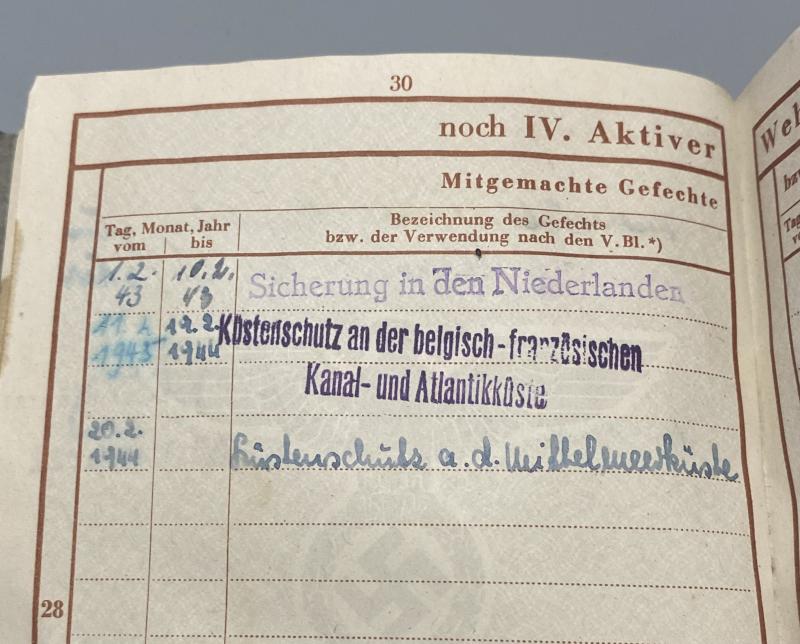 30
noch IV. Aktiver
Mitgemachte Gefechte
Tag, Monat, Jahr
vom bis
Bezeichnung des Gefechts
bzw. der Verwendung nach den V. Bl.*)
1.2. 10.2.
43 43
Sicherung in den Niederlanden
11.2. 19.2.
1943 1944
Küstenschutz an der belgisch-französischen
Kanal- und Atlantikküste
20.2.
1944
Küstenschutz a.d. Mittelmeerküste
28